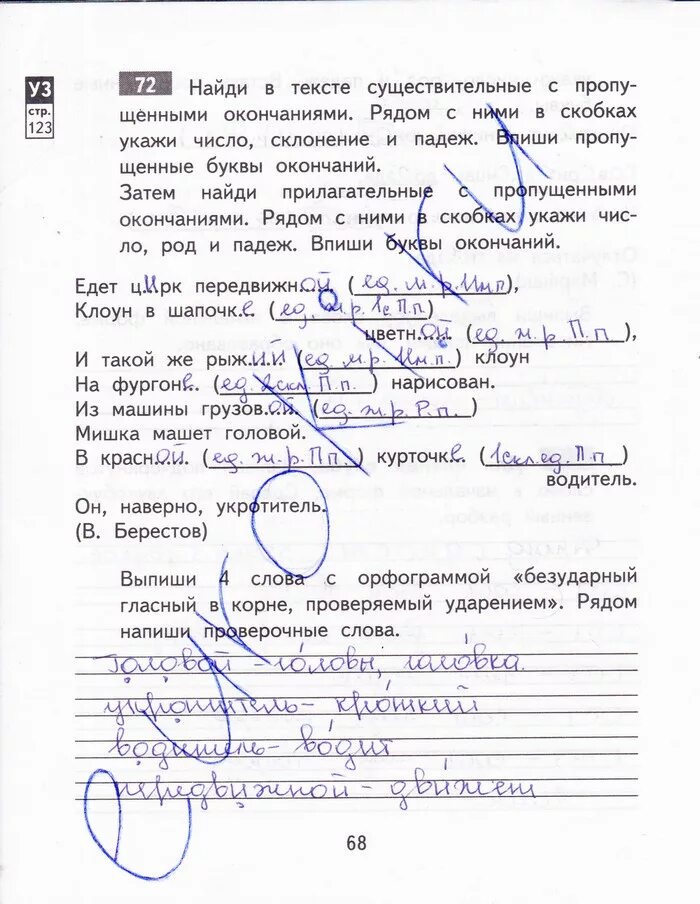 УЗ
стр.
123
72 Найди в тексте существительные с пропу-
щенными окончаниями. Рядом с ними в скобках
укажи число, склонение и падеж. Впиши пропу-
щенные буквы окончаний.
Затем найди прилагательные с пропущенными
окончаниями. Рядом с ними в скобках укажи чис-
ло, род и падеж. Впиши буквы окончаний.
Едет цирк передвижн.ой. (ед. м. р. Им.п),
Клоун в шапочк.е. (ед. ж.р. 1с. П.п)
цветн.ой. (ед. ж. р. П.п),
И такой же рыж.ий. (ед. м.р. Им.п.) клоун
На фургон.е. (ед. 2скл. П.п.) нарисован.
Из машины грузов.ой. (ед. ж.р. Р.п.)
Мишка машет головой.
В красн.ой. (ед. ж.р. П.п) курточк.е. (1скл ед. П.п)
водитель.
Он, наверно, укротитель.
(В. Берестов)
Выпиши 4 слова с орфограммой «безударный
гласный в корне, проверяемый ударением». Рядом
напиши проверочные слова.
Головой – го́ловы, голо́вка.
укротитель – кро́ткий
водитель – во́дит
передвижной – дви́жет
68